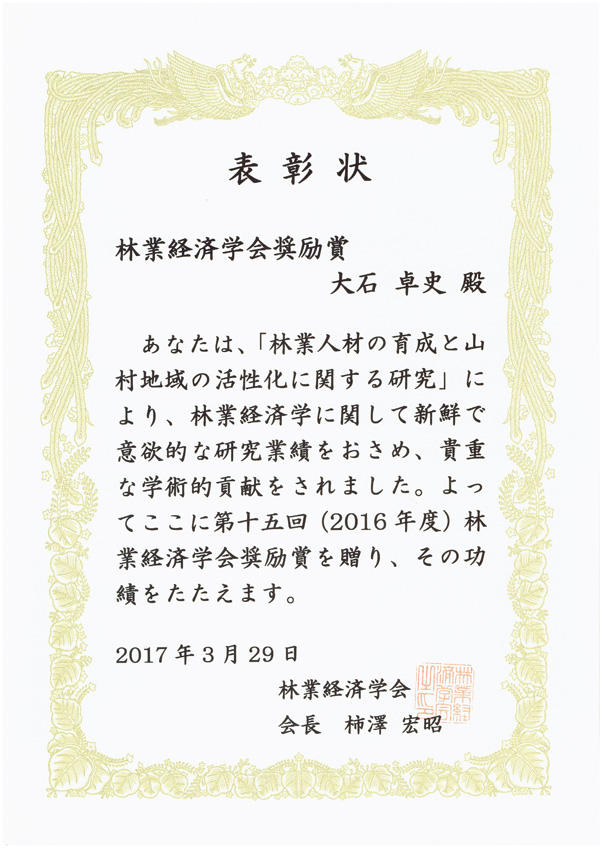 表彰状
林業経済学会奨励賞
大石 卓史 殿
あなたは、「林業人材の育成と山
村地域の活性化に関する研究」に
より、林業経済学に関して新鮮で
意欲的な研究業績をおさめ、貴重
な学術的貢献をされました。よっ
てここに第十五回（2016年度）林
業経済学会奨励賞を贈り、その功
績をたたえます。
2017年3月29日
林業経済学会
会長 柿澤 宏昭
林業経
済学会
之印